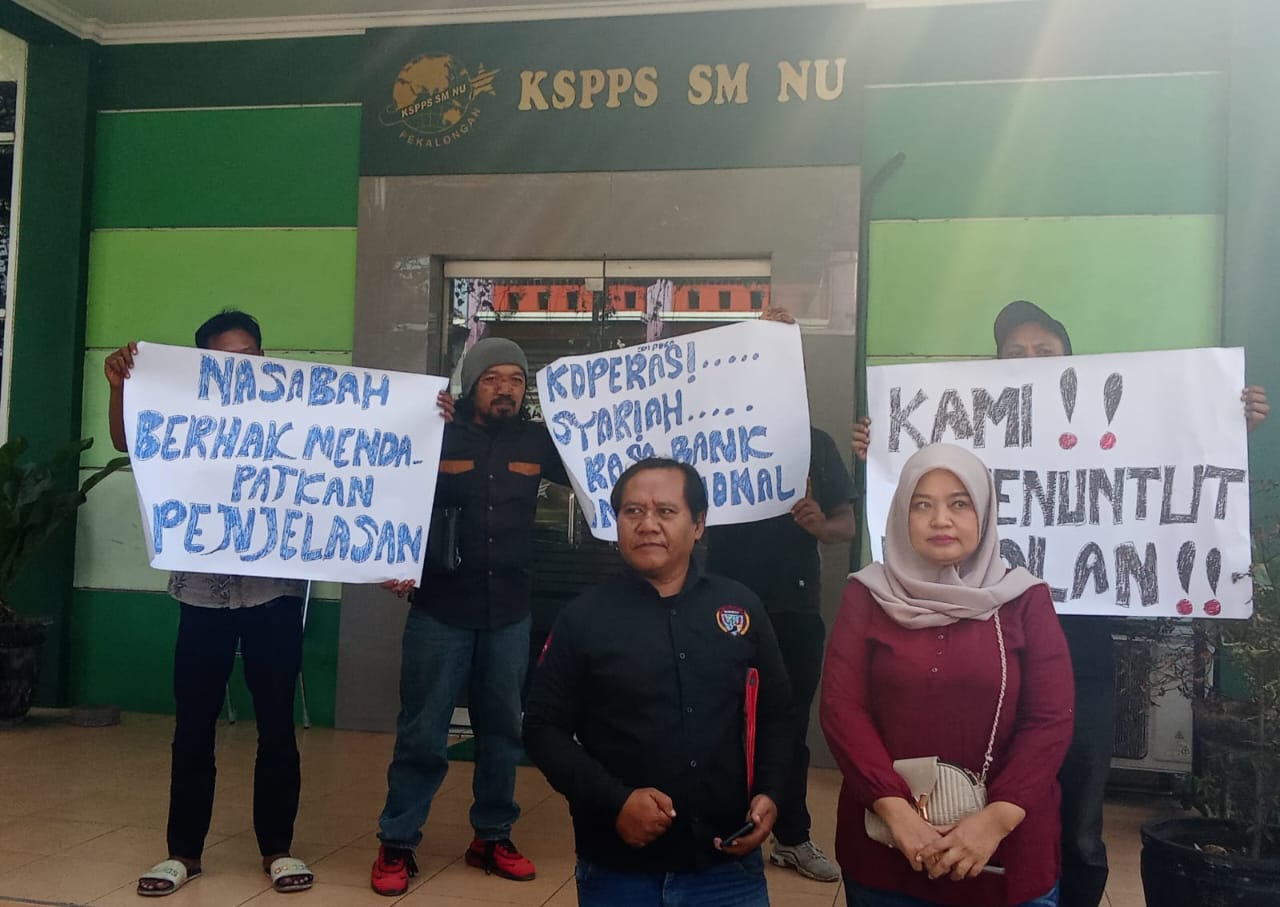 KSPPS SM NU
KSPPS SM NU
PEKALONGAN
NASABAH
BERHAK MENDA-
PATKAN
PENJELASAN
KOPERASI.....
SYARIAH.....
RASA BANK
KAMI!!
ENUNTUT
!!